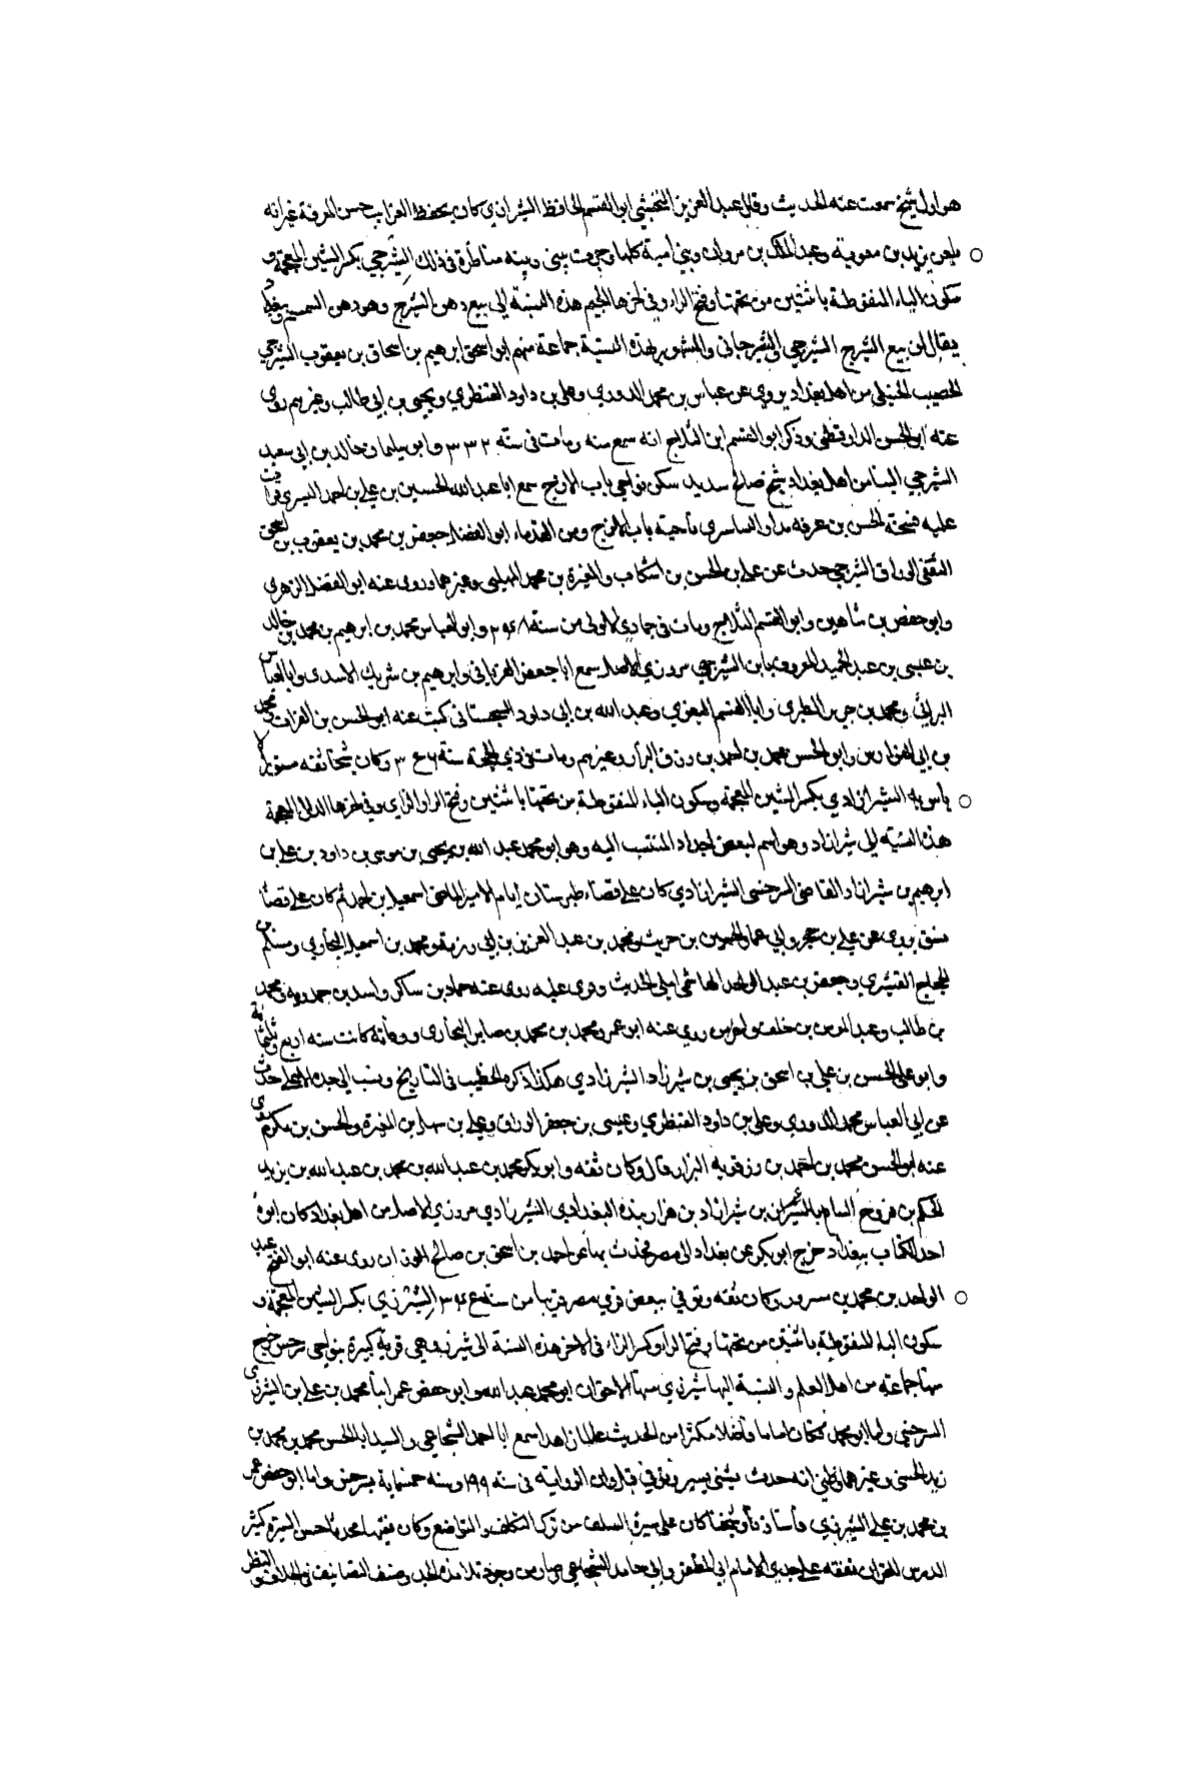 هو اول شيخ سمعت عنه الحديث وقال عبد العزيز النخشبي ابو القسم الحافظ الشيرازي كان يحفظ الغرايب حسن المعرفة غير انه
يلعن يزيد بن معوية وعبد الملك بن مروان وبني امية كلها وجرت بيني وبينه مناظرة في ذلك الشيرجي بكسر الشين المعجمة و
سكون الياء المنقوطة باثنتين من تحتها وفتح الراء وفي اخرها الجيم هذه النسبة الى بيع دهن الشيرج وهو دهن السمسم وببغداد
يقال لمن يبيع الشيرج الشيرجي والشيرجاني والمشهور بهذه النسبة جماعة منهم ابو اسحق ابرهيم بن اسحاق بن يعقوب الشيرجي
الخصيب الحنبلي من اهل بغداد يروي عن عباس بن محمد الدوري وعلي بن داود القنطري ويحيى بن ابي طالب وغيرهم روى
عنه ابو الحسن الدارقطني وذكر ابو القسم ابن الثلاج انه سمع منه ومات في سنة ٣٣٢ وابو سليمان خالد بن ابي سعيد
الشيرجي البنا من اهل بغداد شيخ صالح سديد سكن نواحي باب الازج سمع ابا عبد الله الحسين بن علي بن احمد البسري قرات
عليه نسخة الحسن بن عرفة ناحية باب الازج ومن القدماء ابو الفضل جعفر بن محمد بن يعقوب بن اسحق
الثقفي الوراق الشيرجي حدث عن علي بن الحسن بن اشكاب والمغيرة بن محمد المهلبي وغيرهما روى عنه ابو الفضل الزهري
وابو حفص بن شاهين وابو القسم الثلاج ومات في جمادي الاولى من سنة وابو العباس محمد بن ابرهيم بن محمد بن خالد
بن عيسى بن عبد الحميد المعروف بابن الشيرجي مروزي الاصل سمع ابا جعفر الفريابي وابرهيم بن شريك الاسدي وابا العباس
البراثي ومحمد بن جرير الطبري وابا القسم البغوي وعبد الله بن ابي داود السجستاني كتب عنه ابو الحسن بن الفرات ومحمد
بن ابي الفوارس وابو الحسن محمد بن احمد بن رزق البزار وغيرهم ومات في ذي الحجة سنة وكان شيخا ثقة مستورا لا
باس به الشيرازادي بكسر الشين المعجمة وسكون الياء المنقوطة من تحتها باثنتين وفتح الراء والزاي وفي اخرها الدال المهملة
هذه النسبة الى شيرازاد وهو اسم لبعض اجداد المنتسب اليه وهو ابو محمد عبد الله بن يحيى بن موسى بن داود بن علي بن
ابرهيم بن شيرازاد القاضي السرخسي الشيرازادي كان على قضاء طبرستان ايام الامير الماضي اسمعيل بن احمد ثم كان على قضاء
يروي عن علي بن حجر وابي عمار الحسين بن حريث ومحمد بن عبد العزيز بن ابي رزمة ومحمد بن اسمعيل البخاري ومسلم بن
الحجاج القشيري وجعفر بن عبد الواحد الهاشمي املى الحديث وقرى عليه روى عنه حماد بن شاكر واسد بن حمدويه ومحمد
بن طالب وعبد المومن بن خلف واخرين روى عنه ابو عمرو محمد بن محمد بن صابر البخاري ووفاته كانت سنة اربع وثلثماية
وابو علي الحسن بن علي بن اسحق بن يحيى بن شيرزاد الشيرزادي هكذا ذكره الخطيب في التاريخ ونسب الى جده الاعلى حدث
عن ابي العباس محمد الدوري وعلي بن داود القنطري وعيسى بن جعفر الوراق وعلي بن سهل بن المغيرة والحسن بن مكرم روى
عنه ابو الحسن محمد بن احمد بن رزقويه البزار قال وكان ثقة وابو بكر محمد بن عبد الله بن محمد بن عبد الله بن يزيد
الحكم بن فروخ بن شيرازاد بن هزاربنده البغدادي الشيرزادي مروزي الاصل من اهل بغداد كان ابوه
احد الكتاب ببغداد خرج ابو بكر عن بغداد الى مصر فحدث بها عن احمد بن اسحق بن صالح الوزان روى عنه ابو الفتح عبد
الواحد بن محمد بن مسرور وكان ثقة وتوفي ببعض قرى مصر قريبا من سنة الشيرزي بكسر الشين المعجمة و
سكون الياء المنقوطة باثنتين من تحتها وفتح الراء وكسر الزاء في الاخر هذه النسبة الى شيرز وهي قرية كبيرة بنواحي سرخس خرج
منها جماعة من اهل العلم والنسبة اليها شيرزي منها الاخوان ابو محمد عبد الله وابو حفص عمر ابنا محمد بن علي بن الشيرزي
السرخسي واما ابو محمد فكان اماما فاضلا مكثرا من الحديث سمع ابا احمد الشجاعي والسيد ابا الحسن محمد بن محمد بن
زيد الحسني وغيرهما وظني انه حدث بشيء يسير وتوفي قبل اوان الرواية في سنة ٤٩٩ وسنة خمسماية بسرخس واما ابو حفص عمر
بن محمد بن علي الشيرزي فاستاذنا وشيخنا كان على سيرة السلف من ترك التكلف والتواضع وكان فقيها محدثا حسن السيرة كثير
الدرس للقران تفقه على جدي الامام ابي المظفر وابي حامد الشجاعي وصار من وجوه تلامذة الجد وصنف التصانيف في الخلاف والنظر